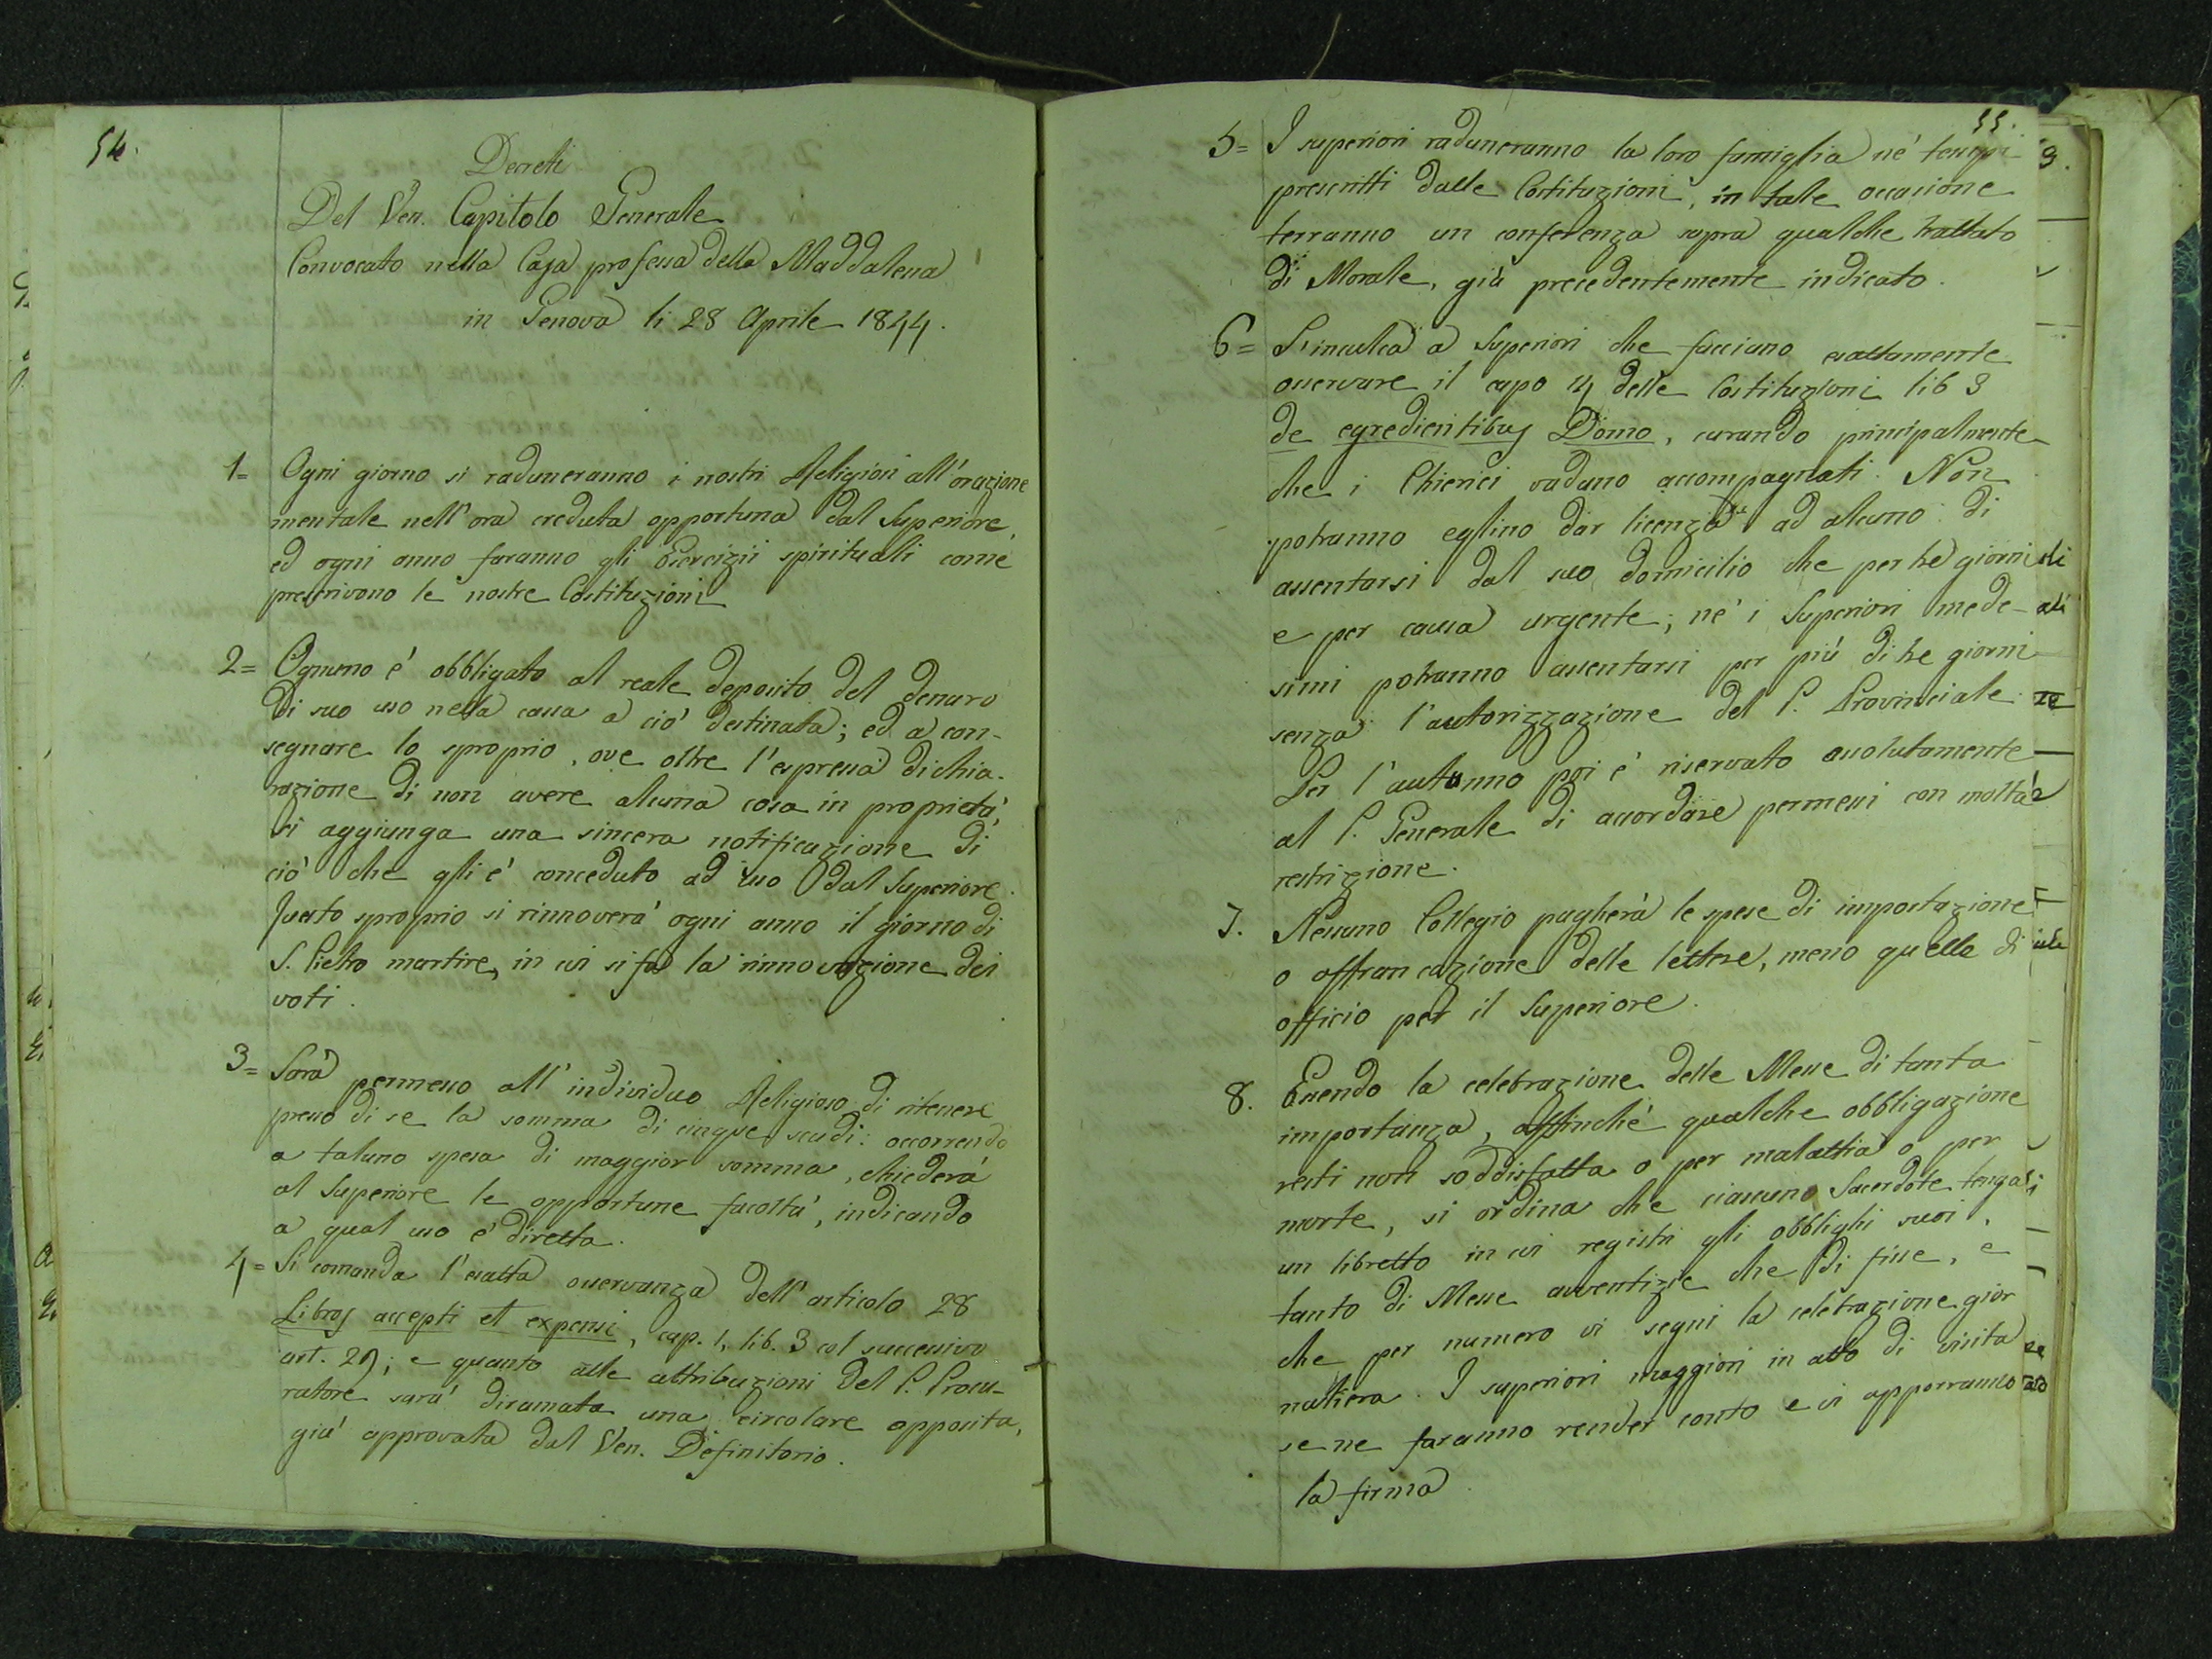 54.
Decreti
Del Ven. Capitolo Generale
Convocato nella Casa professa della Maddalena
in Genova li 28 Aprile 1844.
1= Ogni giorno si raduneranno i nostri Religiosi all'orazione
mentale nell'ora creduta opportuna dal Superiore,
ed ogni anno faranno gli Esercizii spirituali come
prescrivono le nostre Costituzioni
2= Ognuno é obbligato al reale deposito del denaro
di suo uso nella cassa a ció destinata; ed a con-
segnare lo sproprio, ove oltre l'espressa dichia-
razione di non avere alcuna cosa in proprietá,
si aggiunga una sincera notificazione di
ció che gli é conceduto ad uso dal Superiore.
Questo sproprio si rinnoverá ogni anno il giorno di
S. Pietro martire, in cui si fa la rinnovazione dei
voti.
3= Sará permesso all'individuo Religioso di ritenere
presso di se la somma di cinque scudi: occorrendo
a taluno spesa di maggior somma, chiederá
al Superiore le opportune facoltá, indicando
a qual uso é diretta.
4= Si comanda l'esatta osservanza dell'articolo 28
Libros accepti et expensi, cap. 1, lib. 3 col successivo
art. 29; e quanto alle attribuzioni del P. Procu-
ratore sará diramata una circolare apposita,
giá approvata dal Ven. Definitorio.
55.
5= I superiori raduneranno la loro famiglia né tempi
prescritti dalle Costituzioni, in tale occasione
terranno un conferenza sopra qualche trattato
di Morale, giá precedentemente indicato.
6= S'inculca a Superiori che facciano esattamente
osservare il capo 4 delle Costituzioni lib 3
de egredientibus Domo, curando principalmente
che i Chierici vadano accompagnati. Non
potranno eglino dar licenza ad alcuno di
assentarsi dal suo domicilio che per tre giorni
e per causa urgente; né i Superiori mede-
simi potranno assentarsi per piú di tre giorni
senza l'autorizzazione del P. Provinciale.
Per l'autunno poi é riservato assolutamente
al P. Generale di accordare permessi con molta
restrizione.
7. Nessuno Collegio pagherá le spese di impostazione
o affrancazione delle lettere, meno quelle di
officio per il Superiore.
8. Essendo la celebrazione delle Messe di tanta
importanza, affinché qualche obbligazione
resti non soddisfatta o per malattia o per
morte, si ordina che ciascuno Sacerdote tenga
un libretto in cui registri gli obblighi suoi,
tanto di Messe avventizie che di fisse, e
che per numero vi segni la celebrazione gior
naliera. I superiori maggiori in atto di visita
se ne faranno render conto e vi apporranno
la firma